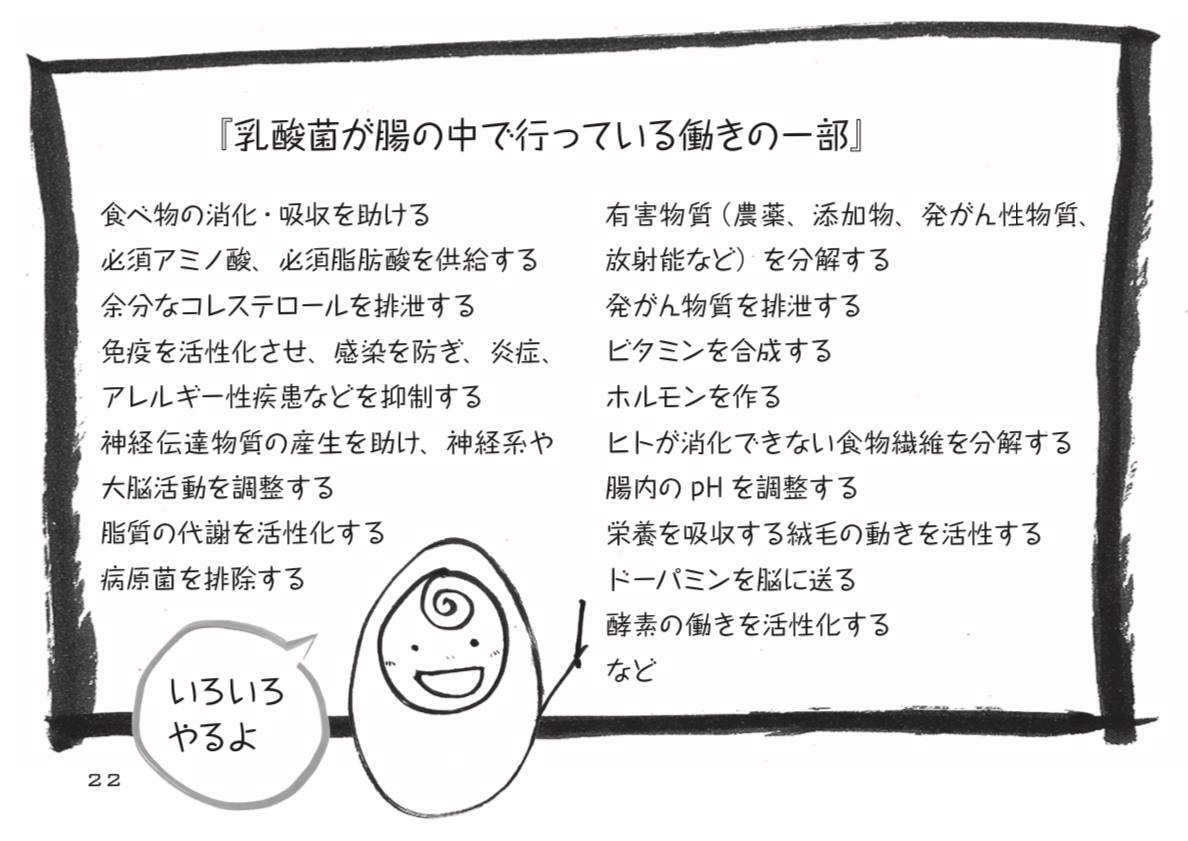 『乳酸菌が腸の中で行っている働きの一部』
食べ物の消化・吸収を助ける
必須アミノ酸、必須脂肪酸を供給する
余分なコレステロールを排泄する
免疫を活性化させ、感染を防ぎ、炎症、
アレルギー性疾患などを抑制する
神経伝達物質の産生を助け、神経系や
大脳活動を調整する
脂質の代謝を活性化する
病原菌を排除する
有害物質（農薬、添加物、発がん性物質、
放射能など）を分解する
発がん物質を排泄する
ビタミンを合成する
ホルモンを作る
ヒトが消化できない食物繊維を分解する
腸内の pH を調整する
栄養を吸収する絨毛の動きを活性する
ドーパミンを脳に送る
酵素の働きを活性化する
など
いろいろ
やるよ
22